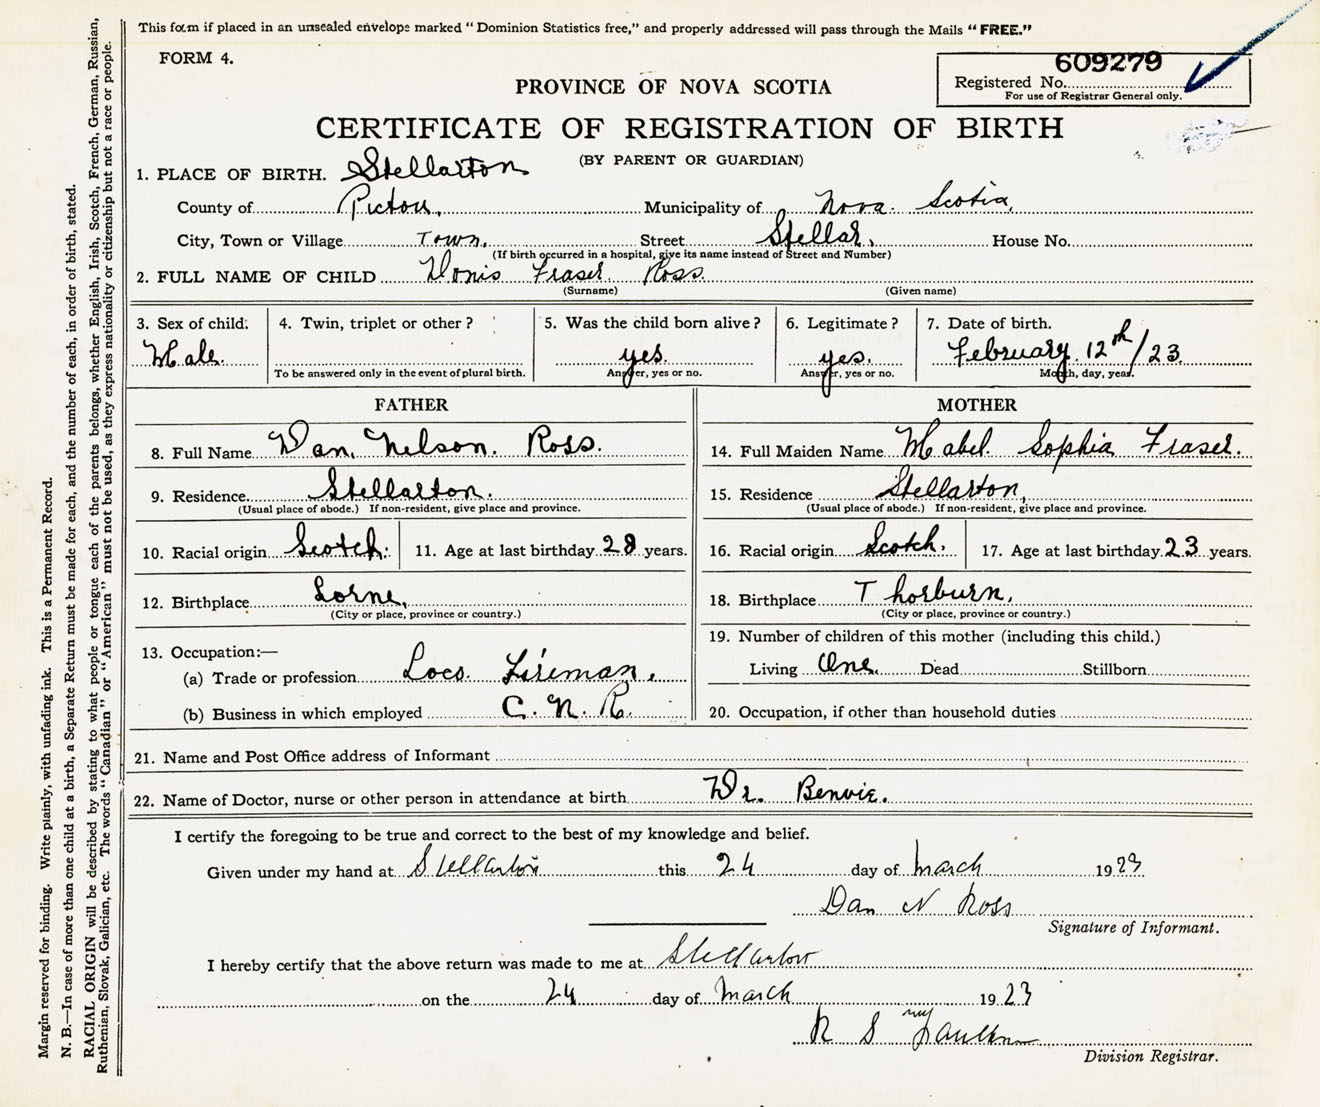 This form if placed in an unsealed envelope marked "Dominion Statistics free," and properly addressed will pass through the Mails "FREE."
FORM 4.
609279
Registered No.
For use of Registrar General only.
PROVINCE OF NOVA SCOTIA
CERTIFICATE OF REGISTRATION OF BIRTH
(BY PARENT OR GUARDIAN)
1. PLACE OF BIRTH. Stellarton
County of Pictou, Municipality of Nova Scotia,
City, Town or Village Town. Street Stellar, House No.
(If birth occurred in a hospital, give its name instead of Street and Number)
2. FULL NAME OF CHILD Donis Fraser Ross.
(Surname) (Given name)
3. Sex of child. 4. Twin, triplet or other? 5. Was the child born alive? 6. Legitimate? 7. Date of birth.
Male. yes. yes. February. 12th/23.
To be answered only in the event of plural birth. Answer, yes or no. Answer, yes or no. Month, day, year.
FATHER
8. Full Name Dan. Nelson. Ross.
9. Residence Stellarton.
(Usual place of abode.) If non-resident, give place and province.
10. Racial origin Scotch. 11. Age at last birthday 28 years.
12. Birthplace Lorne,
(City or place, province or country.)
13. Occupation:—
(a) Trade or profession Loco. Fireman.
(b) Business in which employed C. N. R.
MOTHER
14. Full Maiden Name Mabel. Sophia Fraser.
15. Residence Stellarton,
(Usual place of abode.) If non-resident, give place and province.
16. Racial origin Scotch. 17. Age at last birthday 23 years.
18. Birthplace Thorburn.
(City or place, province or country.)
19. Number of children of this mother (including this child.)
Living One. Dead Stillborn
20. Occupation, if other than household duties
21. Name and Post Office address of Informant
22. Name of Doctor, nurse or other person in attendance at birth Dr. Benvie.
I certify the foregoing to be true and correct to the best of my knowledge and belief.
Given under my hand at Stellarton this 24 day of March 1923
Dan N Ross
Signature of Informant.
I hereby certify that the above return was made to me at Stellarton
on the 24 day of March 1923
R S
Division Registrar.
Margin reserved for binding. Write plainly, with unfading ink. This is a Permanent Record.
N. B.—In case of more than one child at a birth, a Separate Return must be made for each, and the number of each, in order of birth, stated.
RACIAL ORIGIN will be described by stating to what people or tongue each of the parents belongs, whether English, Irish, Scotch, French, German, Russian,
Ruthenian, Slovak, Galician, etc. The words "Canadian" or "American" must not be used, as they express nationality or citizenship but not a race or people.